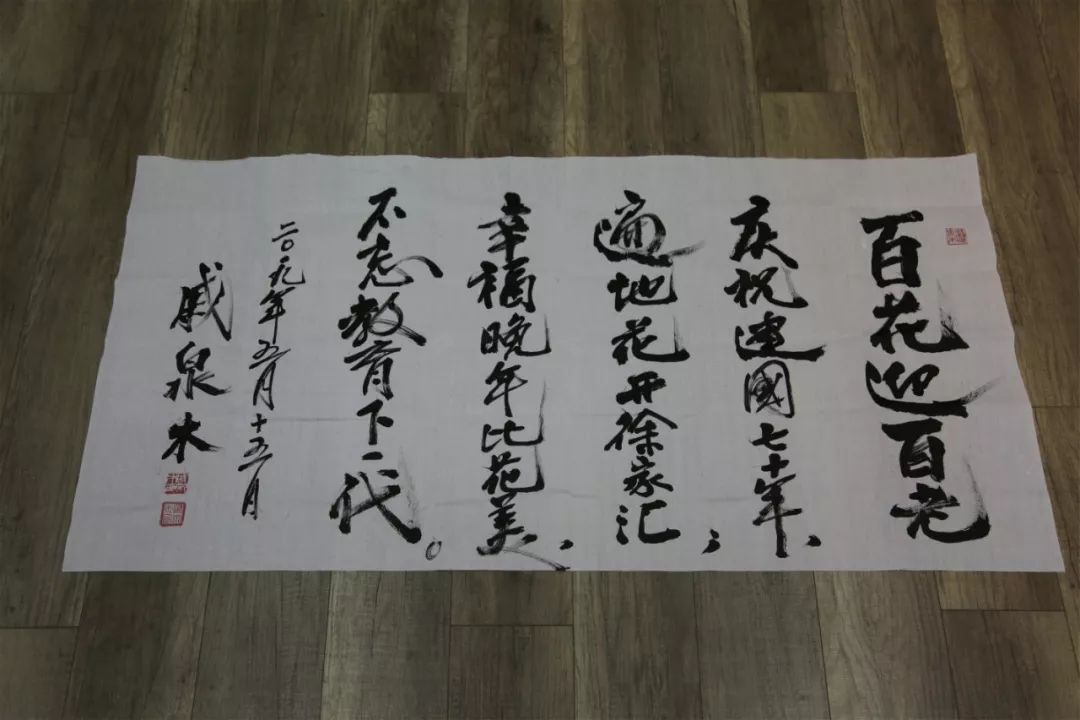 百花迎百老
庆祝建國七十年、
遍地花开徐家汇；
幸福晚年比花美，
不忘教育下一代。
二〇一九年五月十五月
戚泉木